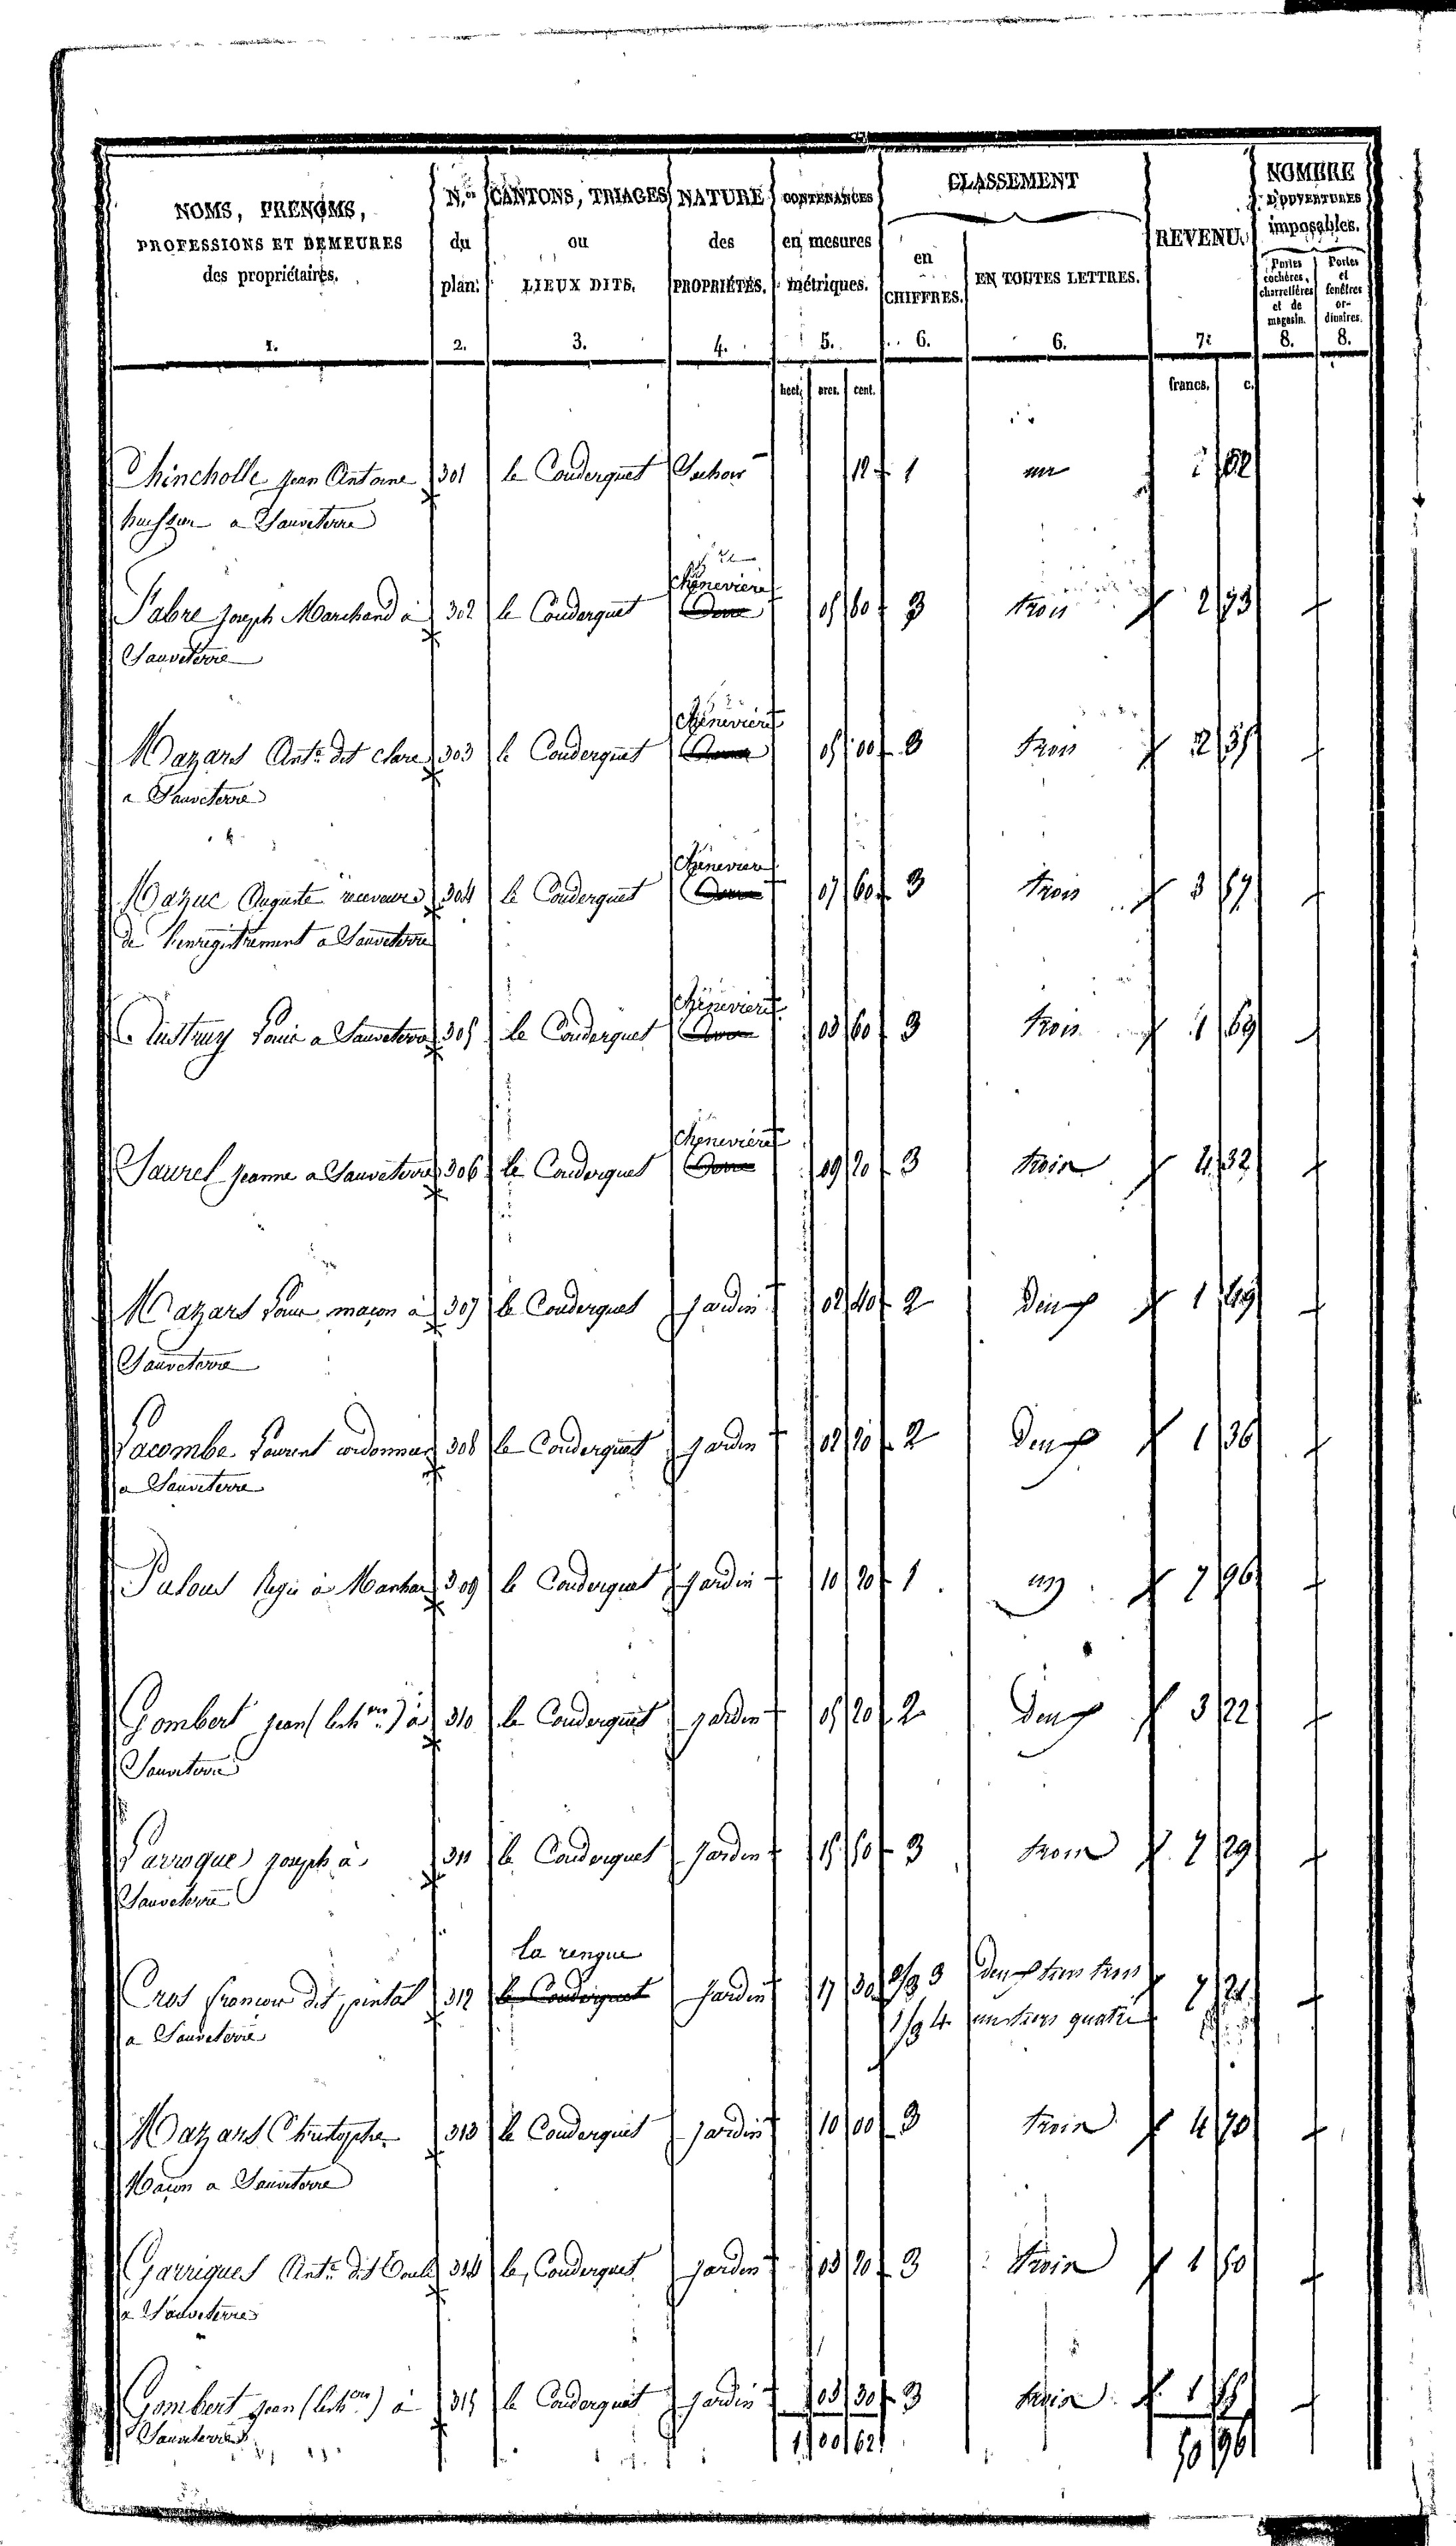 NOMS, PRENOMS,
PROFESSIONS ET DEMEURES
des propriétaires.
1.
N.os
du
plan.
2.
CANTONS, TRIAGES
ou
LIEUX DITS.
3.
NATURE
des
PROPRIÉTÉS.
4.
CONTENANCES
en mesures
métriques.
5.
CLASSEMENT
en
CHIFFRES.
6.
EN TOUTES LETTRES.
6.
REVENU.
7.
NOMBRE
D'OUVERTURES
imposables.
Portes
cochères,
charretières
et de
magasin.
8.
Portes
et
fenêtres
or-
dinaires.
8.
hect. ares. cent. francs. c.
Chincholle jean Antoine 301 le Couderquet 12 1 un
huissier a Sauveterre
Chenevière
Fabre joseph Marchand à 302 le Couderguet 05 60 3 trois 2
Sauveterre
Chenevière
Mazars Ante dit clare 303 le Couderguet 05 00 3 trois 2 35
a Sauveterre
Chenevière
Mazuc Auguste receveur 304 le Couderguet 07 60 3 trois 3 57
de l'enregistrement a Sauveterre
Chenevière
a Sauveterre 305 le Couderguet 03 60 3 trois 1 69
Chenevière
Saurel jeanne a Sauveterre 306 le Couderguet 09 20 3 trois 4 32
Mazars maçon à 307 le Couderguet jardin 02 40 2 Deux 1 49
Sauveterre
Lacombe Laurent cordonnier 308 le Couderguet jardin 02 20 2 Deux 1 36
a Sauveterre
Palous Regis à 309 le Couderguet jardin 10 20 1 un 7 96
Gombert jean à 310 le Couderguet jardin 05 20 2 Deux 3 22
Sauveterre
Larroque joseph à 311 le Couderguet jardin 15 50 3 trois 7 29
Sauveterre
La rengue
Cros francois dit pintat 312 le Couderguet jardin 17 30 2/3 3 deux tiers trois 7 21
a Sauveterre 1/3 4 un tiers quatre
Mazars Christophe 313 le Couderguet jardin 10 00 3 trois 4 70
Maçon a Sauveterre
Garrigues Ante dit 314 le Couderguet jardin 03 20 3 trois 1 50
a Sauveterre
Gombert jean à 315 le Couderguet jardin 03 30 3 trois 1 55
Sauveterre
1 00 62 50 96